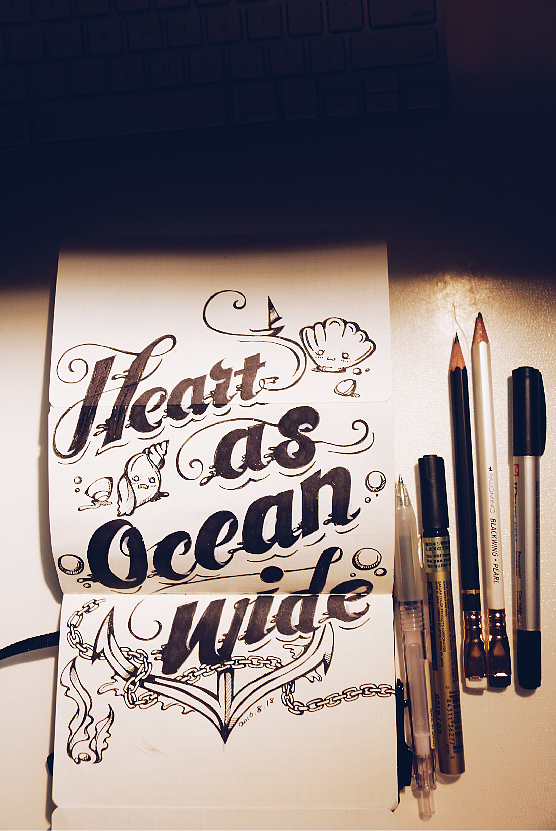 Heart
as
Ocean
Wide
2015.8.18
BLACKWING • PEARL